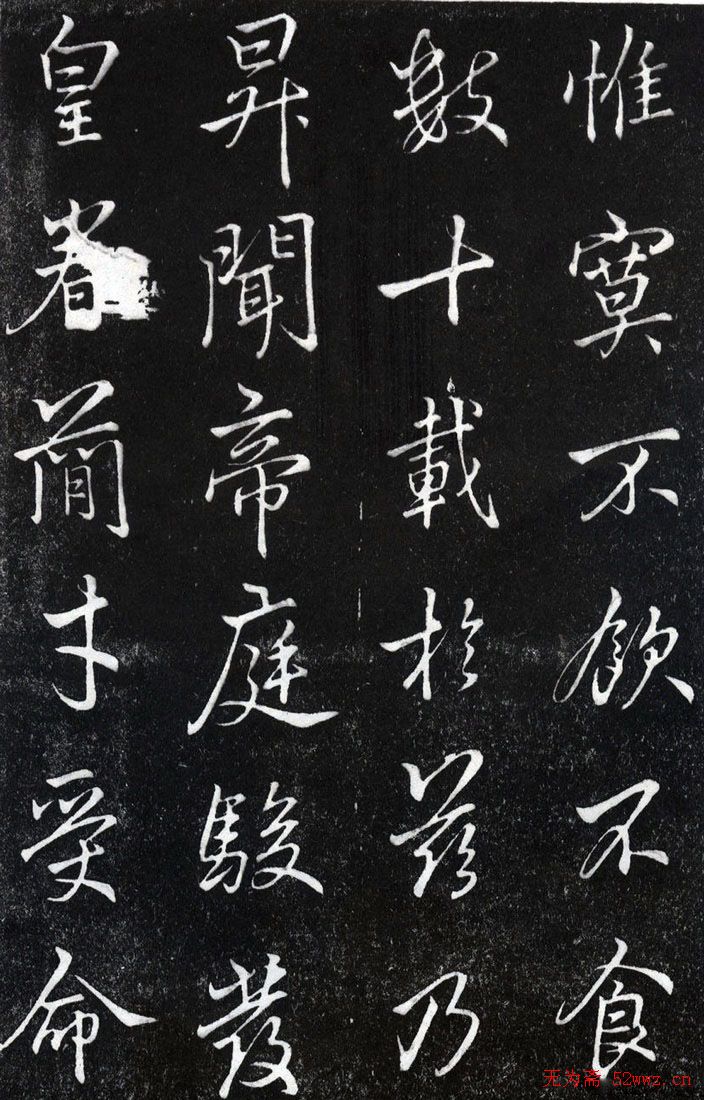 惟寞不飲不食
數十載於茲乃
昇聞帝庭駿發
皇眷簡才受命
无为斋 52wwz.cn